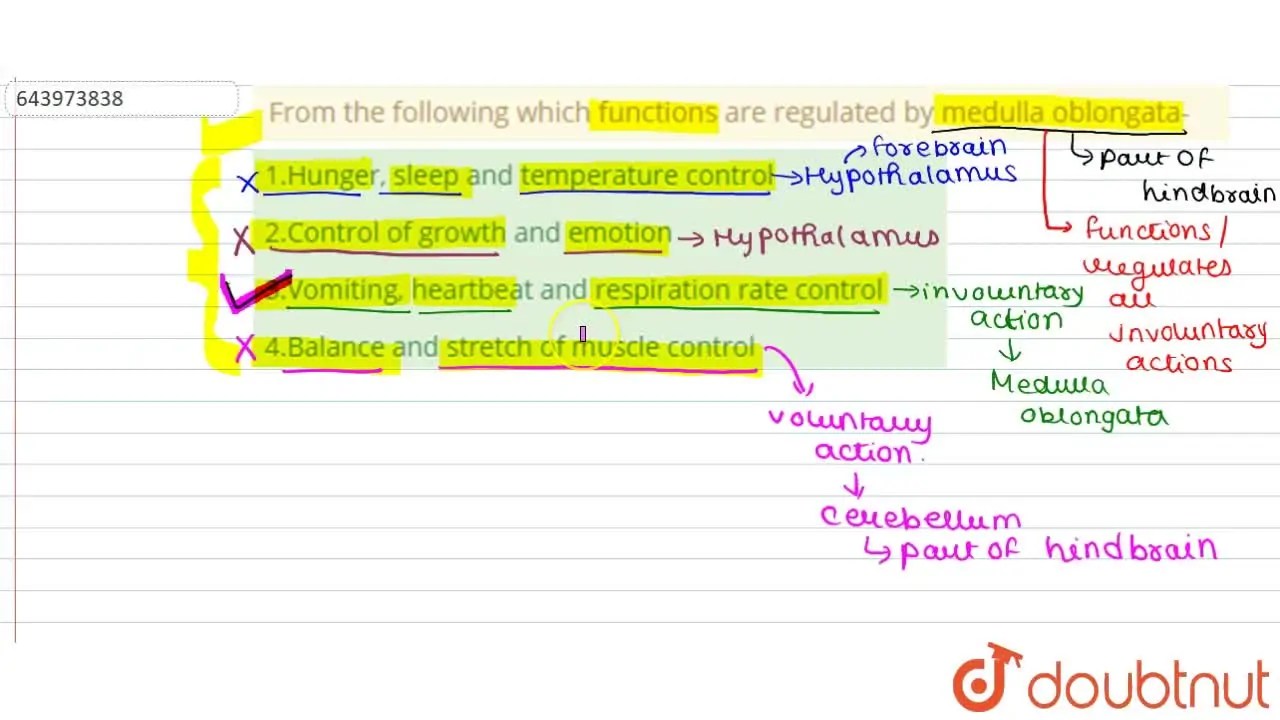 643973838
From the following which functions are regulated by medulla oblongata-
1.Hunger, sleep and temperature control → Hypothalamus
forebrain
part of
hindbrain
2.Control of growth and emotion → Hypothalamus
functions/
regulates
all
involuntary
actions
3.Vomiting, heartbeat and respiration rate control → involuntary
action
Medulla
oblongata
4.Balance and stretch of muscle control
voluntary
action.
cerebellum
part of hindbrain
doubtnut